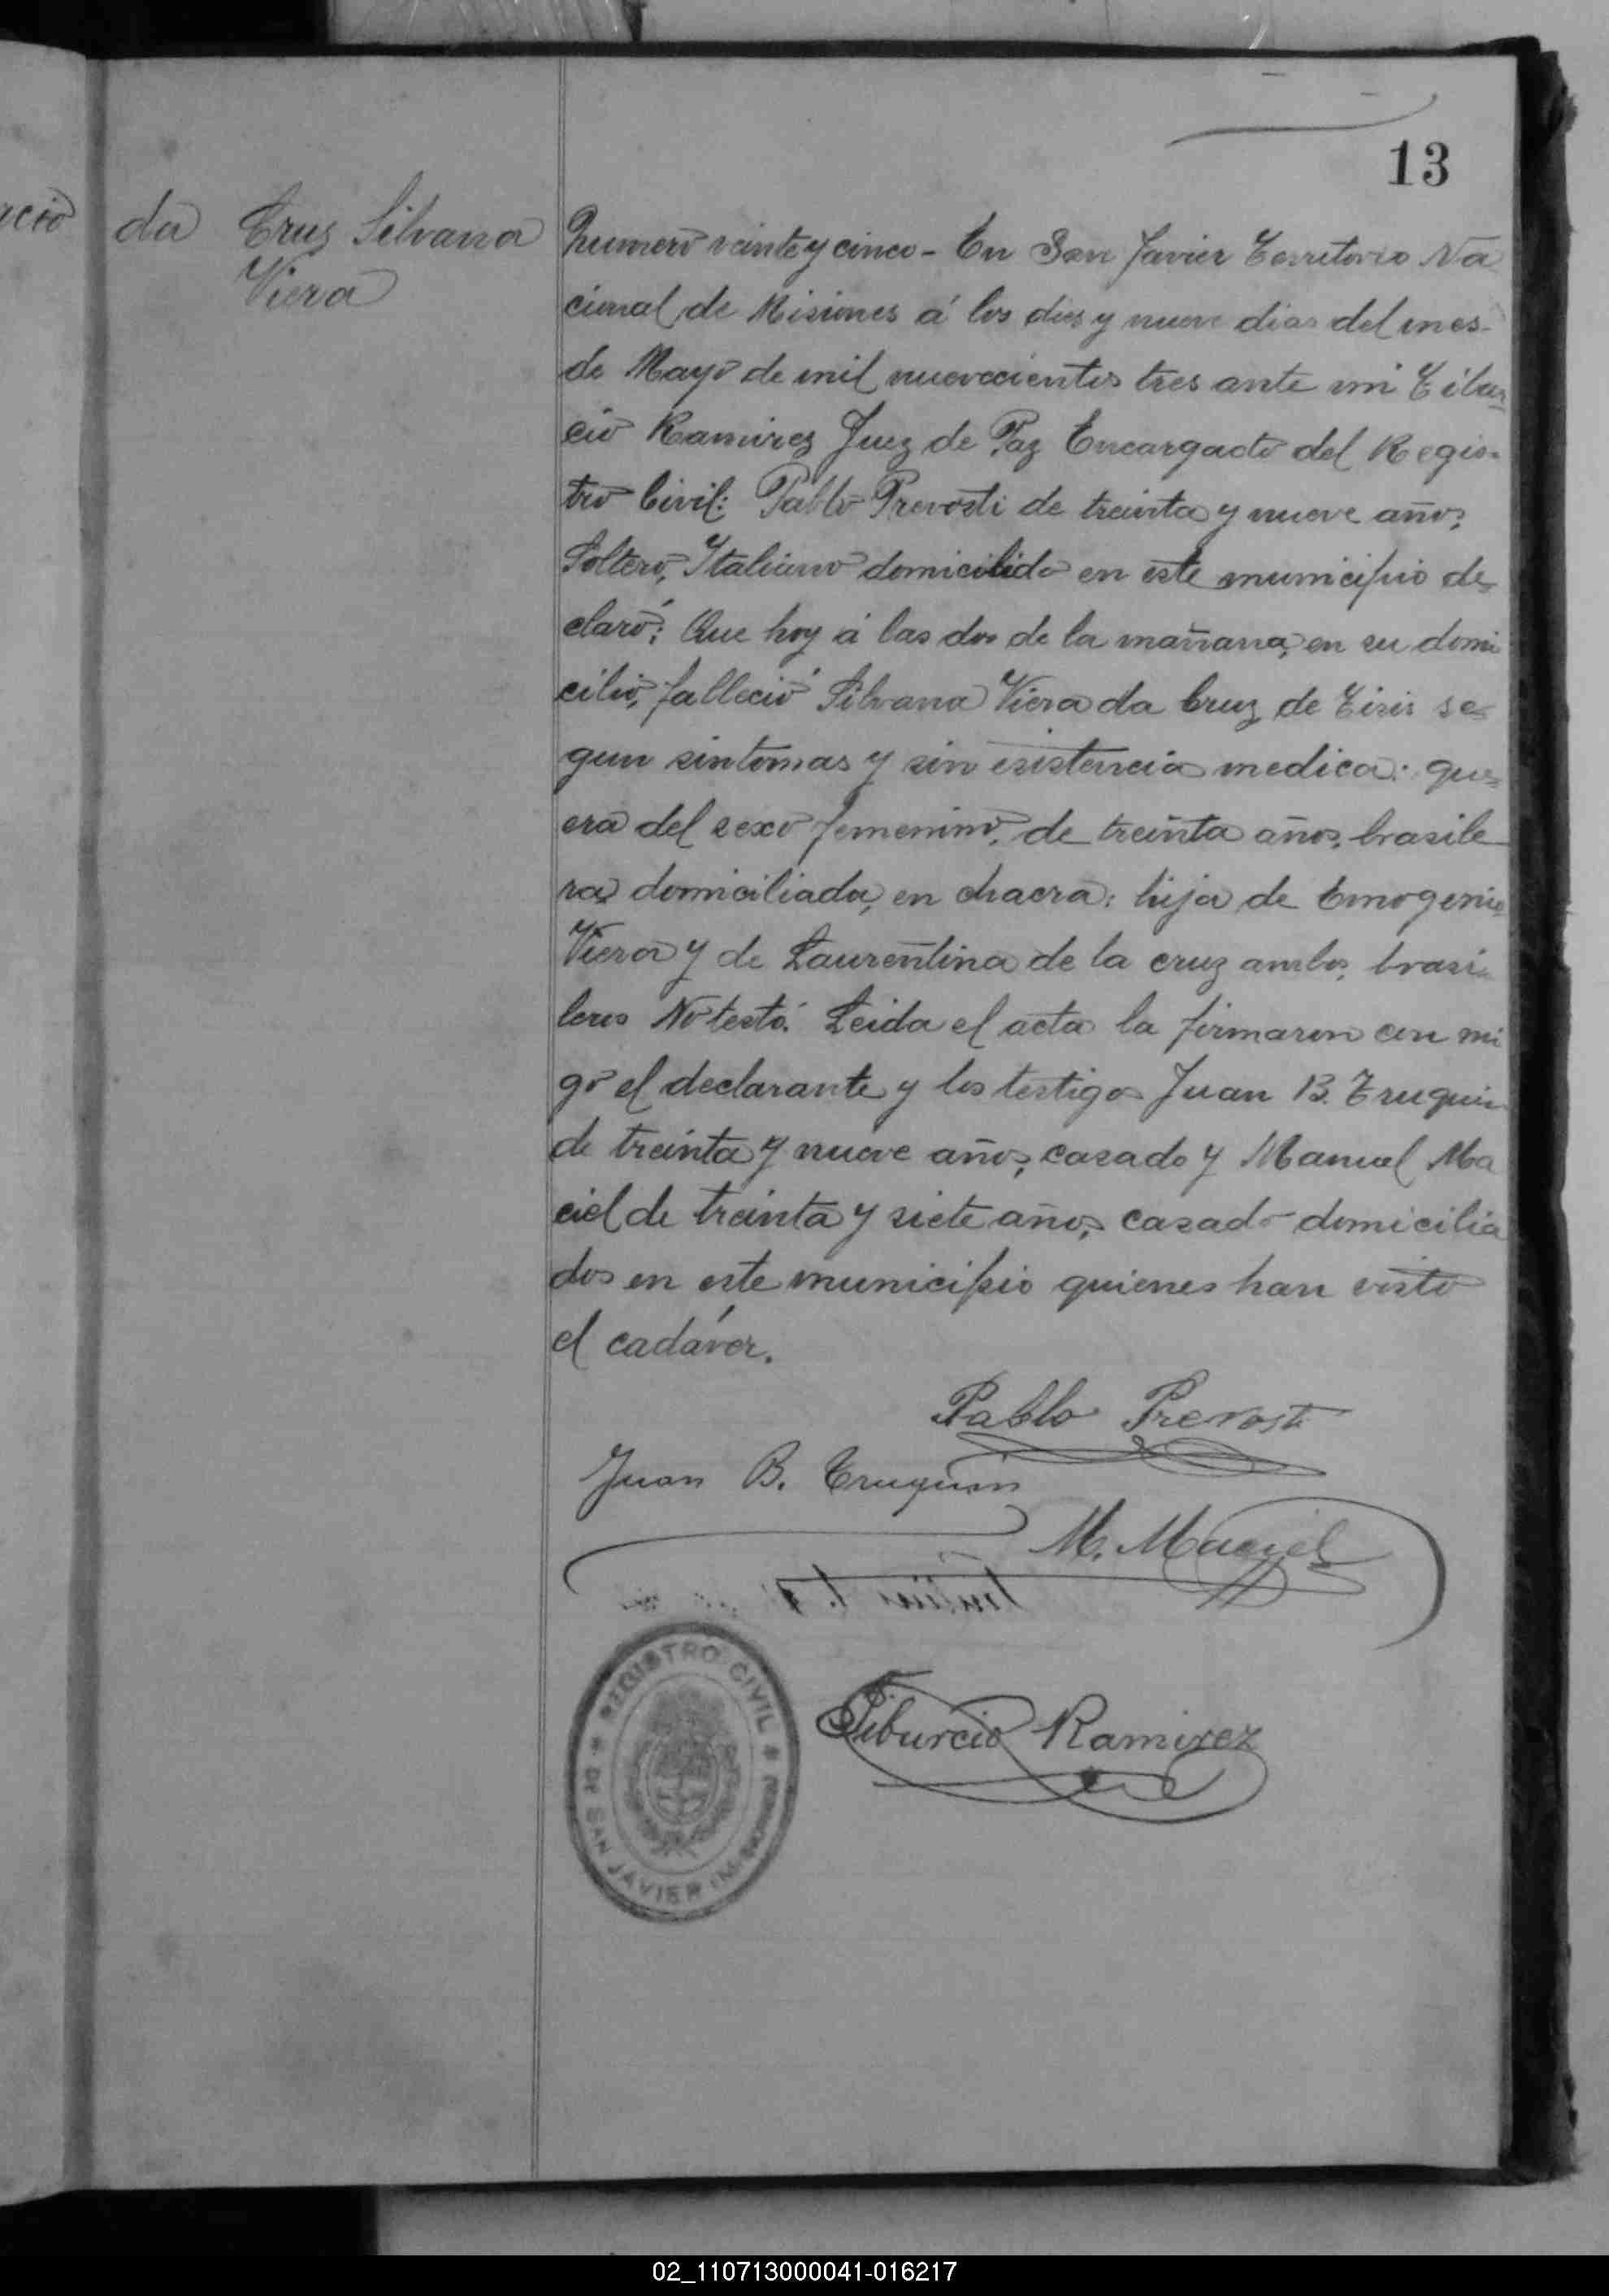 13
da Cruz Silvana
Viera
Numero veinte y cinco - En San Javier Territorio Na
cional de Misiones á los dies y nueve dias del mes
de Mayo de mil nuevecientos tres ante mi Tibur
cio Ramires Juez de Paz Encargado del Regis-
tro Civil: Pablo Prevosti de treinta y nueve años,
Soltero, Italiano domicilido en este municipio de
claró: Que hoy á las dos de la mañana, en su domi
cilio, falleció Silvana Viera da Cruz de Tisis se
gun sintomas y sin esistencia medica: que
era del sexo femenino, de treinta años, brasile
ra domiciliada, en chacra: hija de Emogenio
Viera y de Laurentina de la cruz ambos brasi
leros No testó. Leida el acta la firmaron con mi
go el declarante y los testigos Juan B. Truquin
de treinta y nueve años, casado y Manuel Ma
ciel de treinta y siete años, casado domicilia
dos en este municipio quienes han visto
el cadáver.
Pablo Prevosti
Juan B. Truquin
M. Maciel
REGISTRO CIVIL
DE SAN JAVIER (MISIONES)
Tiburcio Ramirez
02_110713000041-016217